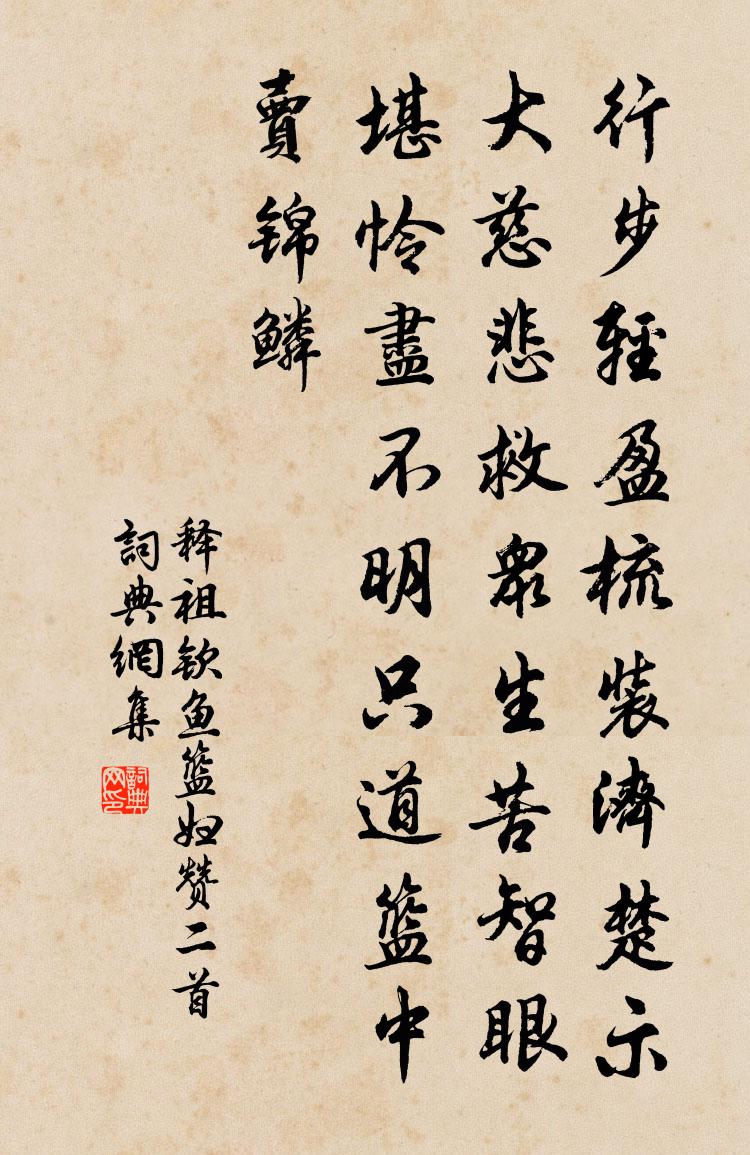 行步輕盈梳裝濟楚示
大慈悲救衆生苦智眼
堪怜盡不明只道籃中
賣锦鳞
释祖钦鱼籃妇赞二首
詞典網集
詞典
网印